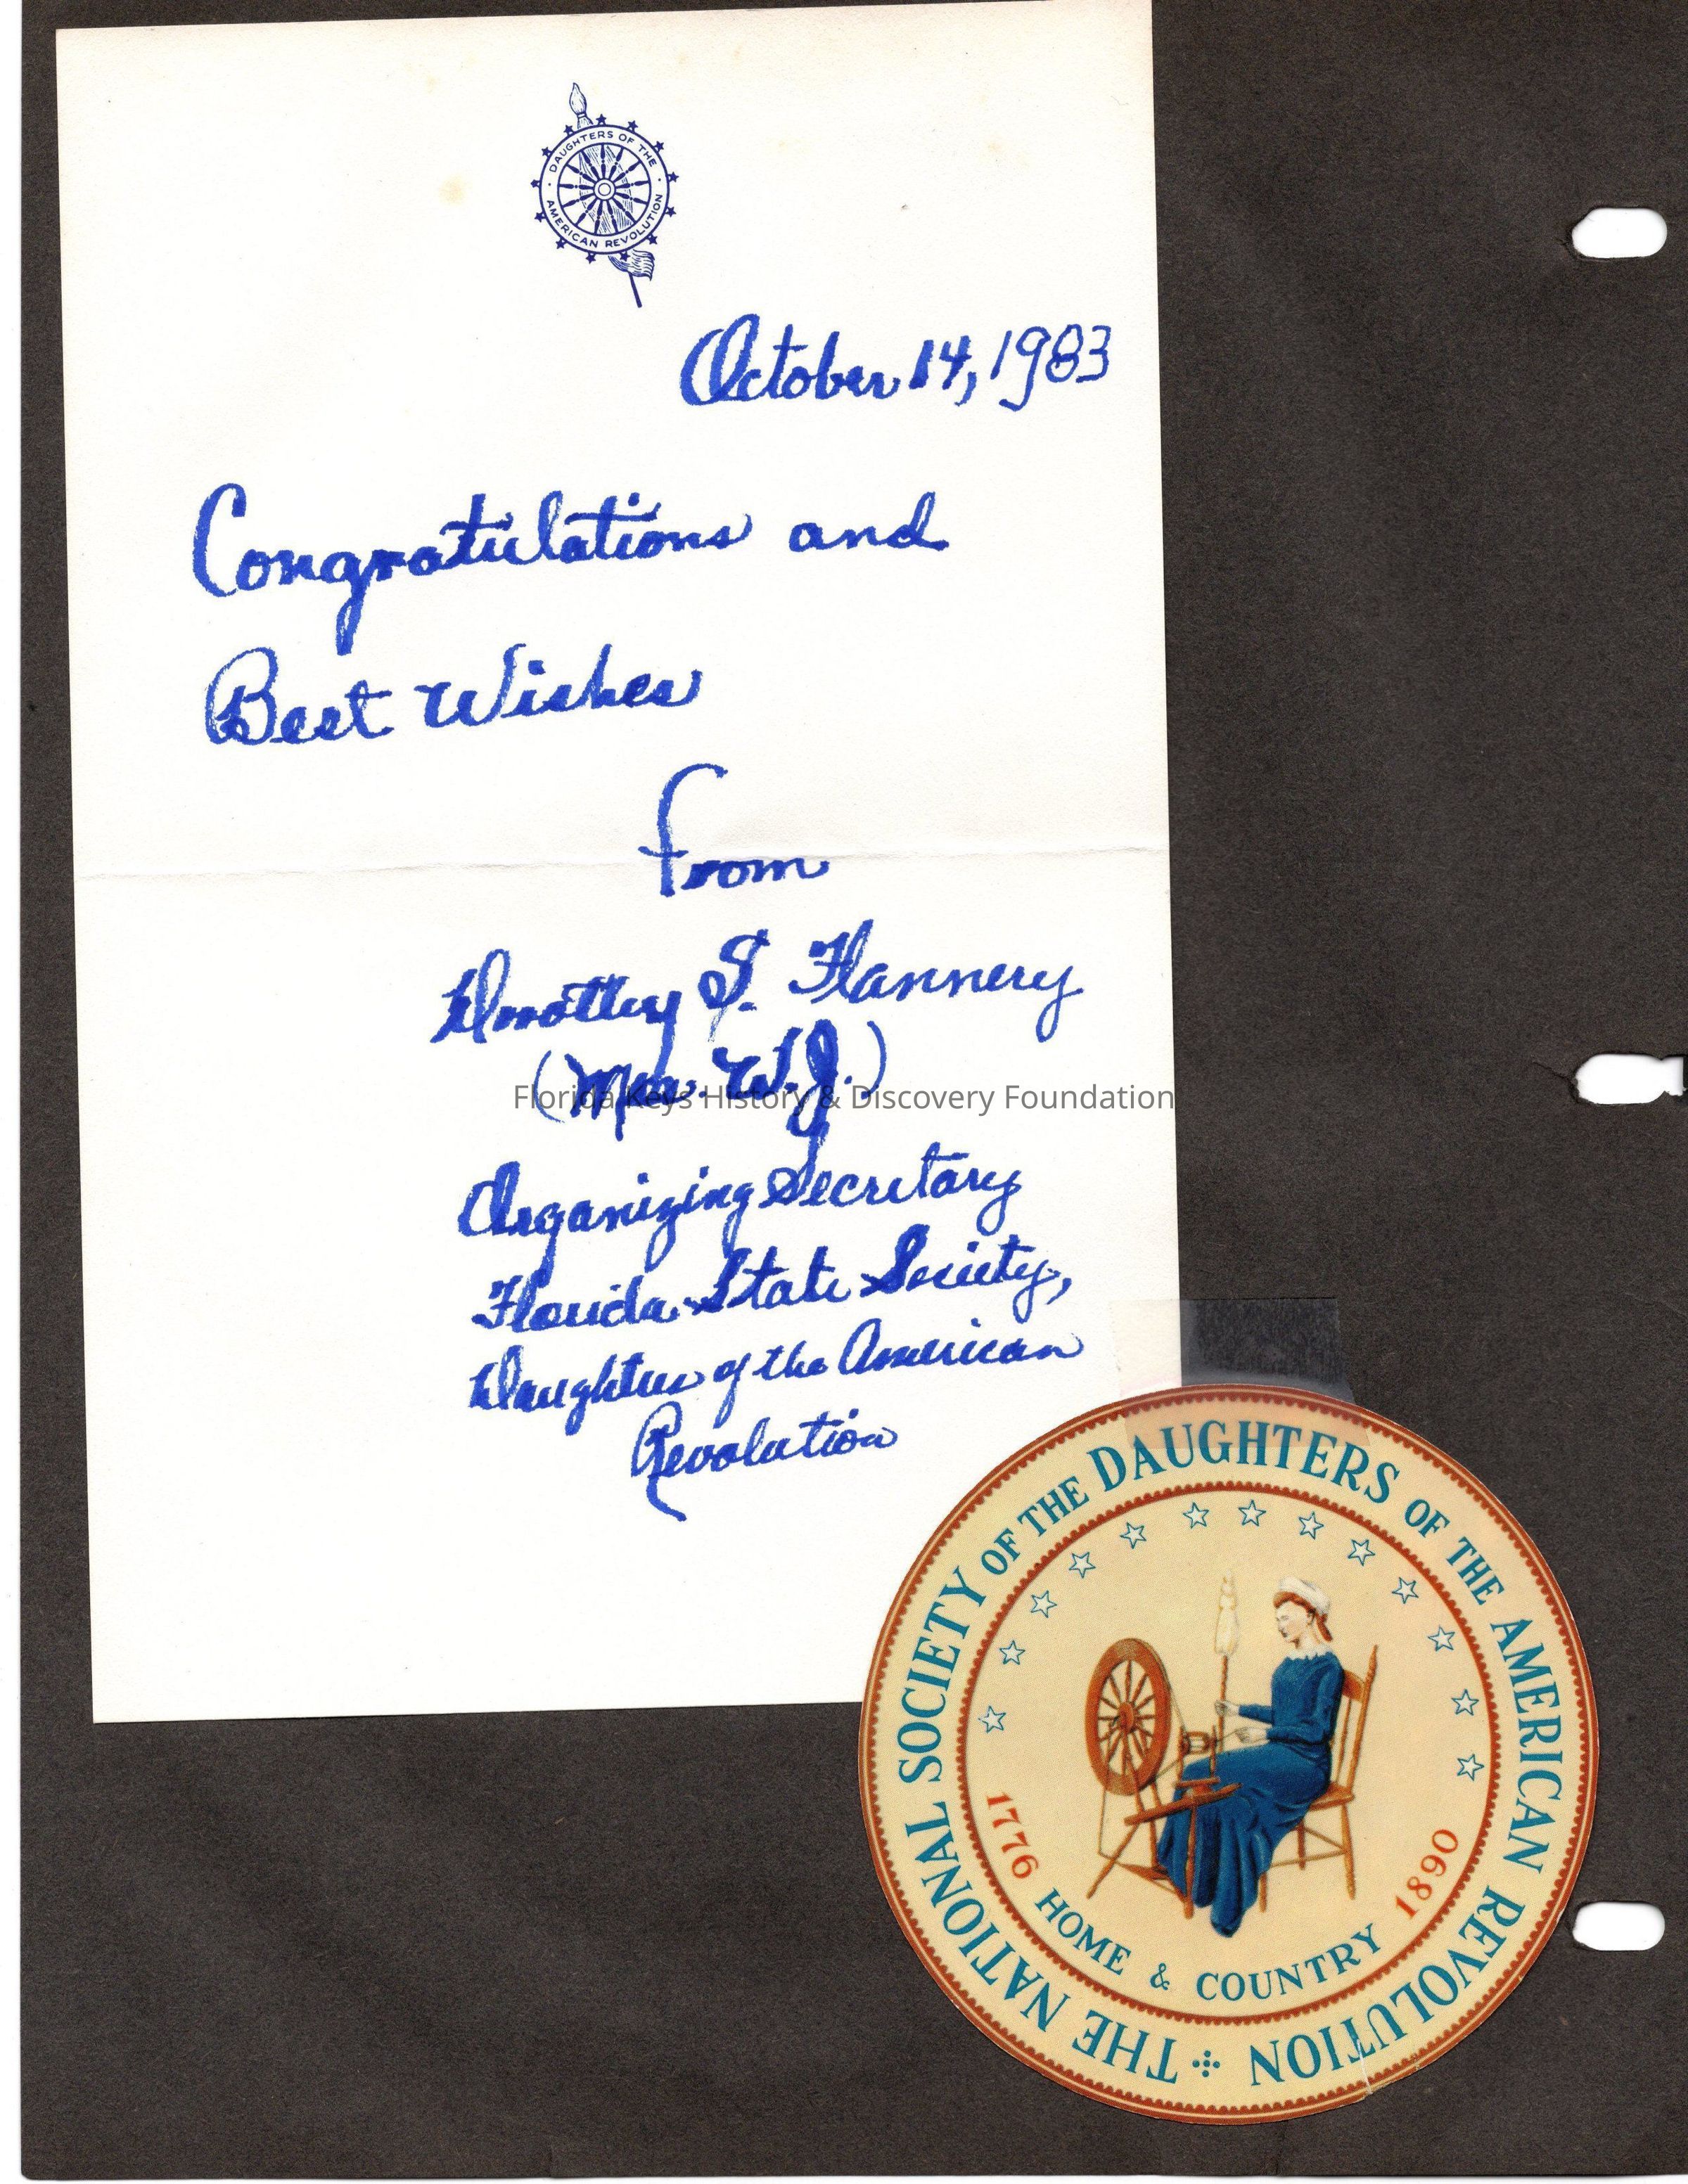 DAUGHTERS OF THE
AMERICAN REVOLUTION
October 14, 1983
Congratulations and
Best Wishes
from
Dorothy S. Flannery
(Mrs. W.J.)
Florida Keys History & Discovery Foundation
Organizing Secretary
Florida State Society,
Daughters of the American
Revolution
THE NATIONAL SOCIETY OF THE DAUGHTERS OF THE AMERICAN REVOLUTION
1776
HOME & COUNTRY
1890